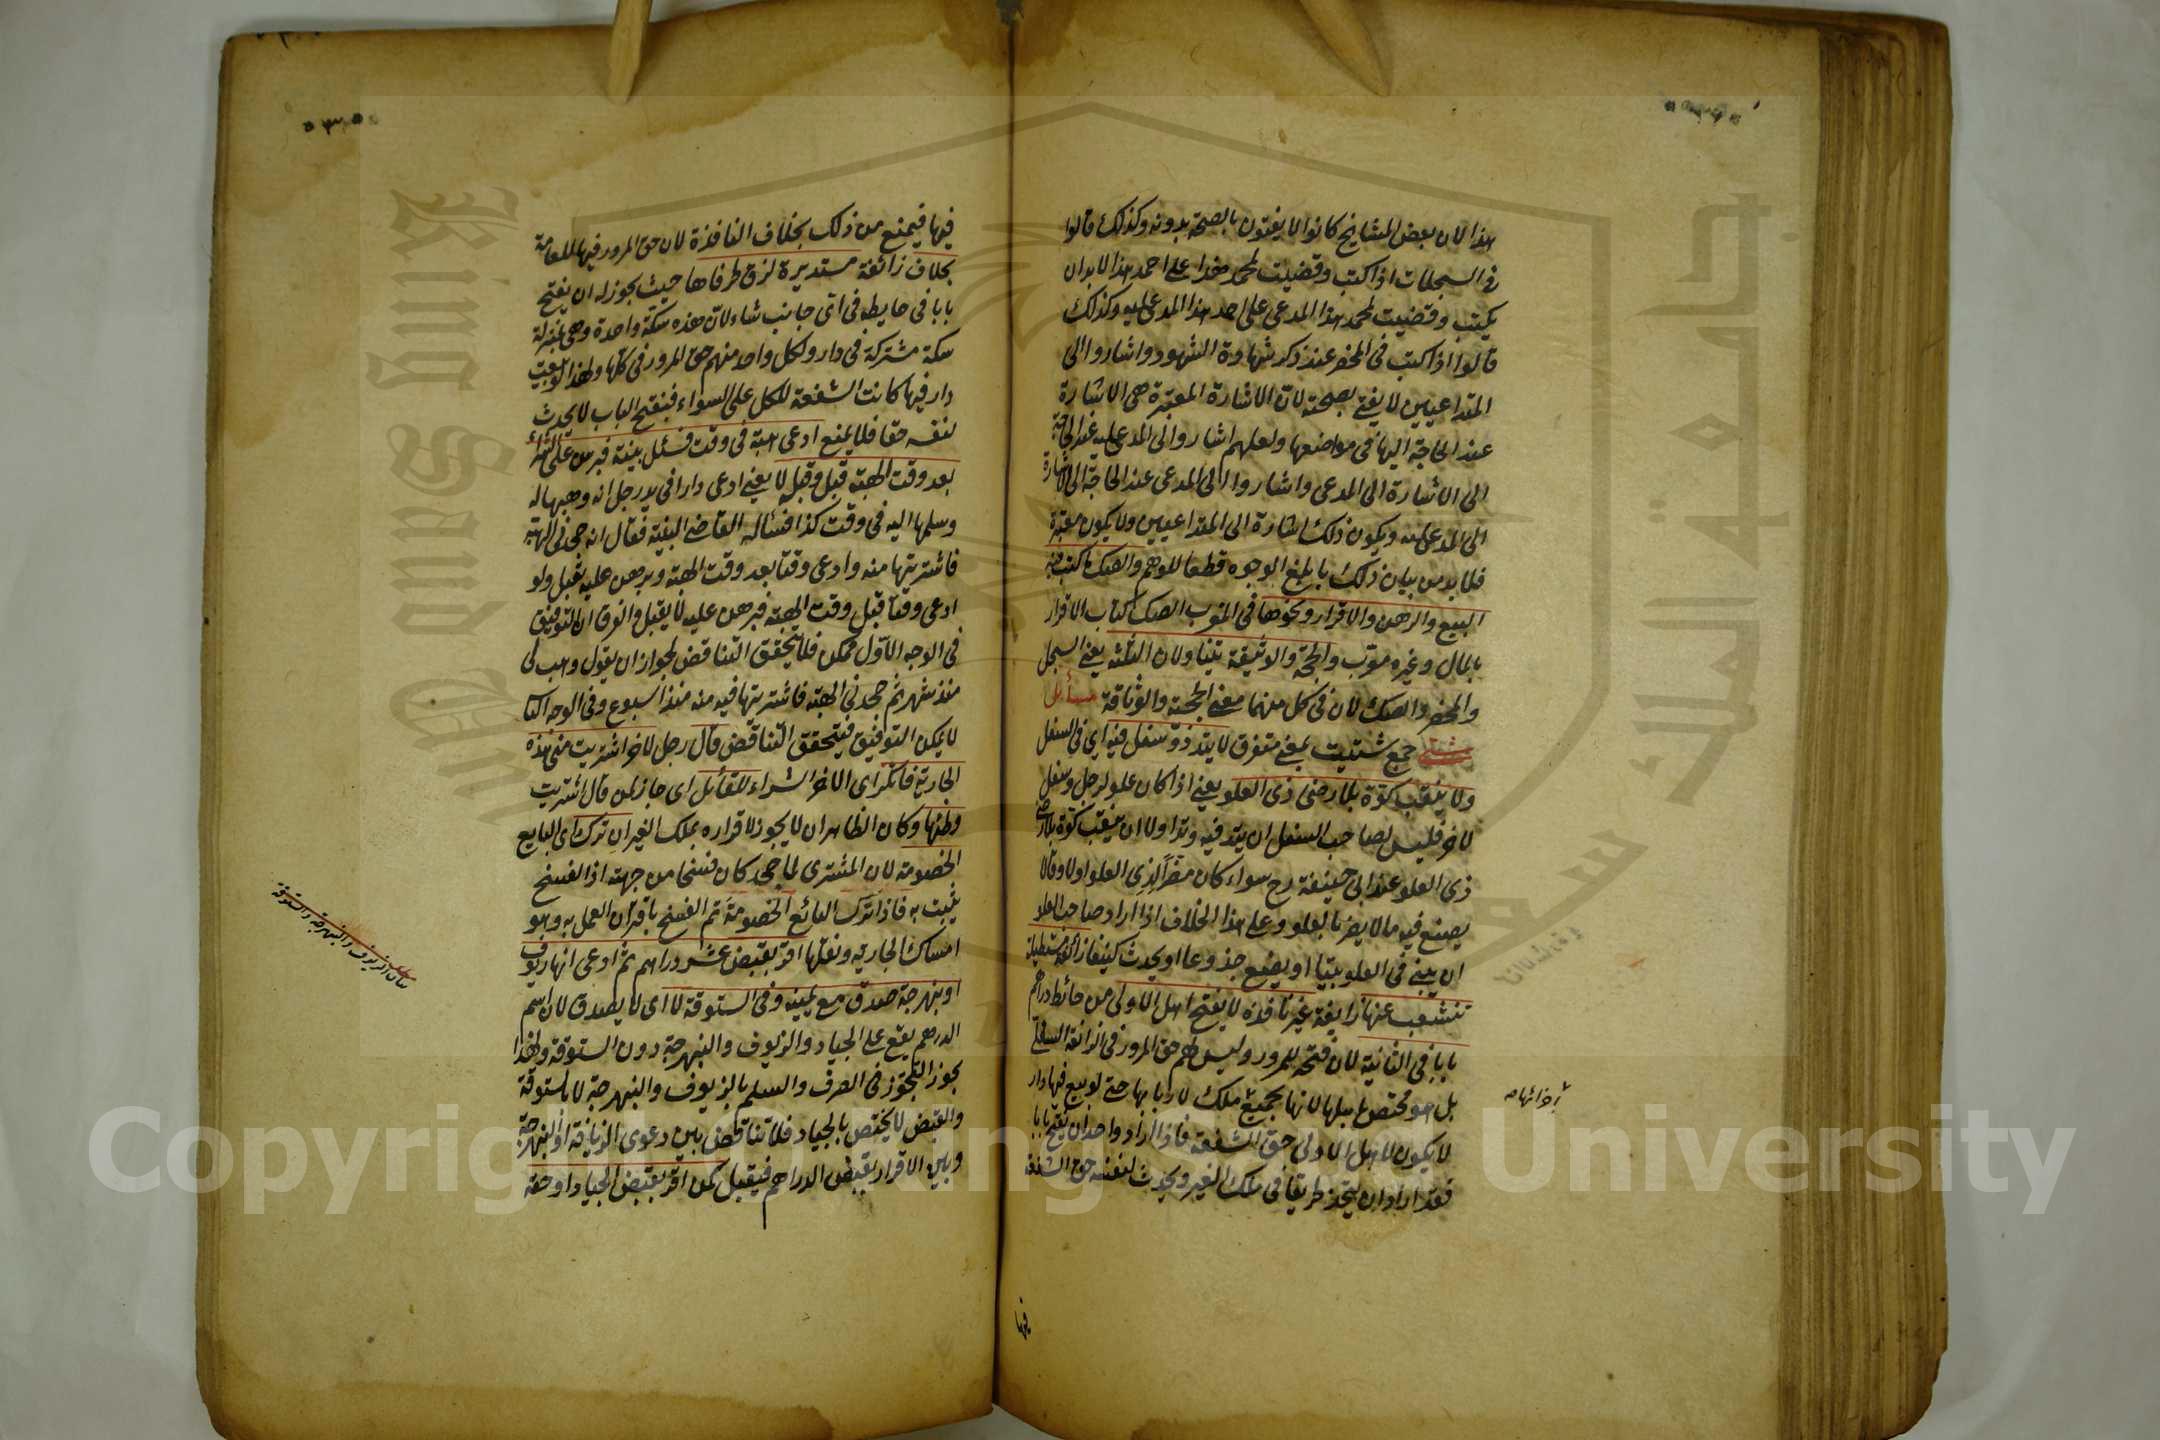 هذا لان بعض المشايخ كانوا لا يفتون بالصحة بدونه وكذلك قالوا
في السجلات اذا كتب وقضيت لمحمد هذا على احمد هذا لا بد ان
يكتب وقضيت لمحمد هذا المدعى على احمد هذا المدعى عليه وكذلك
قالوا اذا كتب في المحضر عند ذكر شهادة الشهود واشاروا الى
المتداعيين لا يفتى بصحته لان الاشارة المعتبرة هي الاشارة
عند الحاجة اليها في مواضعها ولعلهم اشاروا الى المدعى عليه عند الحاجة
الى الاشارة الى المدعى واشاروا الى المدعى عند الحاجة الى الاشارة
الى المدعى عليه ويكون ذلك اشارة الى المتداعيين ولا يكون معتبرة
فلا بد من بيان ذلك بابلغ الوجوه قطعا للوهم والصك ما كتب فيه
البيع والرهن والاقرار ونحوها في المغرب الصك كتاب الاقرار
بالمال وغيره معرب والحجة والوثيقة يتناولان الثلثة يعنى السجل
والمحضر والصك لان في كل منهما معنى الحجة والوثاقة مسائل
شتى جمع شتيت بمعنى متفرق لا يتد ذو سفل فيه اي في السفل
ولا ينقب كوة بلا رضى ذى العلو يعنى اذا كان علو لرجل وسفل
لاخر فليس لصاحب السفل ان يتد فيه وتدا ولا ان ينقب كوة بلا رضى
ذى العلو عند ابى حنيفة رح سواء كان مضرا لذى العلو اولا وقالا
يصنع فيه ما لا يضر بالعلو وعلى هذا الخلاف اذا اراد صاحب العلو
ان يبنى في العلو بيتا او يضع جذوعا او يحدث كنيفا زائغة مستطيلة
تنشعب عنها زايغة غير نافذة لا يفتح اهل الاولى من حائط دارهم
بابا في الثانية لان فتحه للمرور وليس لهم حق المرور في الزائغة السفلى
بل هو مختص باهلها لانها بجميع ملك لاربابها حتى لو بيع فيها دار
لا يكون لاهل الاولى حق الشفعة فاذا اراد واحد ان يفتح بابا
فقد اراد ان يتخذ طريقا في ملك الغير ويحدث لنفسه حق الشفعة
فيها
فيها فيمنع من ذلك بخلاف النافذة لان حق المرور فيها للعامة
بخلاف زائغة مستديرة لزق طرفاها حيث يجوز له ان يفتح
بابا في حايطه في اى جانب شاء لان هذه سكة واحدة وهى بمنزلة
سكة مشتركة في دار ولكل واحد منهم حق المرور في كلها ولهذا لو بيعت
دار فيها كانت الشفعة للكل على السواء فبفتح الباب لا يحدث
لنفسه حقا فلا يمنع ادعى هبة في وقت فسئل بينة فبرهن على الشراء
بعد وقت الهبة قبل وقبله لا يعنى ادعى دارا في يد رجل انه وهبها له
وسلمها اليه في وقت كذا فسئاله القاضى البينة فقال انه جحدنى الهبة
فاشتريتها منه وادعى وقتا بعد وقت الهبة وبرهن عليه يقبل ولو
ادعى وقتا قبل وقت الهبة فبرهن عليه لا يقبل والفرق ان التوفيق
في الوجه الاول ممكن فلا يتحقق التناقض لجواز ان يقول وهب لى
منذ شهر ثم جحدنى الهبة فاشتريتها فيه منه منذ اسبوع وفى الوجه الثانى
لا يمكن التوفيق فيتحقق التناقض قال رجل لاخر اشتريت منى هذه
الجارية فانكر اى الاخر الشراء للقائل اى جاز لمن قال اشتريت
وطئها وكان الظاهر ان لا يجوز لاقراره بملك الغير ان ترك اى البايع
الخصومة لان المشترى لما جحد كان فسخا من جهته اذ الفسخ
يثبت به فاذا ترك البائع الخصومة تم الفسخ باقتران العمل به وهو
امساك الجارية ونقلها اقر بقبض عشرة دراهم ثم ادعى انها زيوف
او بنهرجة صدق مع يمينه وفى الستوقة لا اى لا يصدق لان اسم
الدرهم يقع على الجياد والزيوف والنبهرجة دون الستوقة ولهذا
يجوز التجوز في الصرف والسلم بالزيوف والنبهرجة لا بالستوقة
والقبض لا يختص بالجياد فلا تناقض بين دعوى الزيافة او النبهرجة
وبين الاقرار بقبض الدراهم فيقبل كمن اقر بقبض الجياد او حقه
بيان الزيوف والنبهرجة والستوقة
Copyright © King Saud University